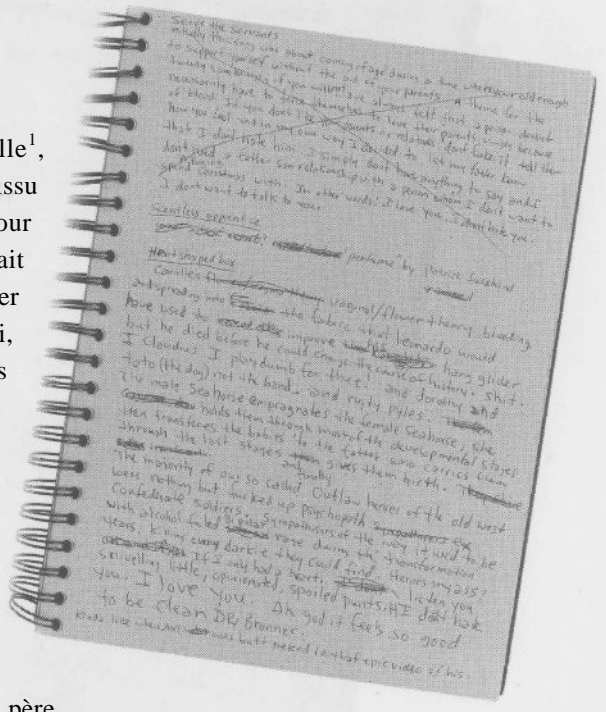 lle¹,
issu
our
ait
er
i,
s
père
Serve the servants
Mostly this song was about coming of age during a time when your old enough
to support yourself without the aid of your parents. A theme for the
twenty somethings if you will. Ive always felt that a person doesnt
necessarily have to force themselves to love their parents simply because
of blood. If you dont like your parents or relatives dont fake it. tell them
how you feel and in my own way I decided to let my father know
that I dont hate him. I simply dont have anything to say and I
dont need a father son relationship with a person whom I dont want to
spend a christmas with. In other words: I love you. i dont hate you.
I dont want to talk to you.
Scentless apprentice
"perfume" by Patrick Suskind
Heart shaped box
Camilles vaginal/flower theory bleeding
and spreading into the fabric that leonardo would
have used to improve his hang glider
but he died before he could change the course of history. shit.
I Claudius I play dumb for three! and dorothy and
toto (the dog) not the band. and rusty pyles.
The male seahorse empregnates the female seahorse, she
holds them through most of the developmental stages
then transferes the babies to the father who carries them
through the last stages and finally gives them birth.
The majority of our so called Outlaw heroes of the old west
were nothing but fucked up psychopath
Confederate soldiers. Sympathisors of the way it used to be
with alcohol fueled rage during the transformation
years, killing every darkie they could find. Heroes my ass!
If I only had a heart, listen you
sniveling little, opinionated, spoiled punts: I dont hate
you. I love you. Ah god it feels so good
to be clean DR, Bronner.
Kinda like when was butt naked in that epic video of his.